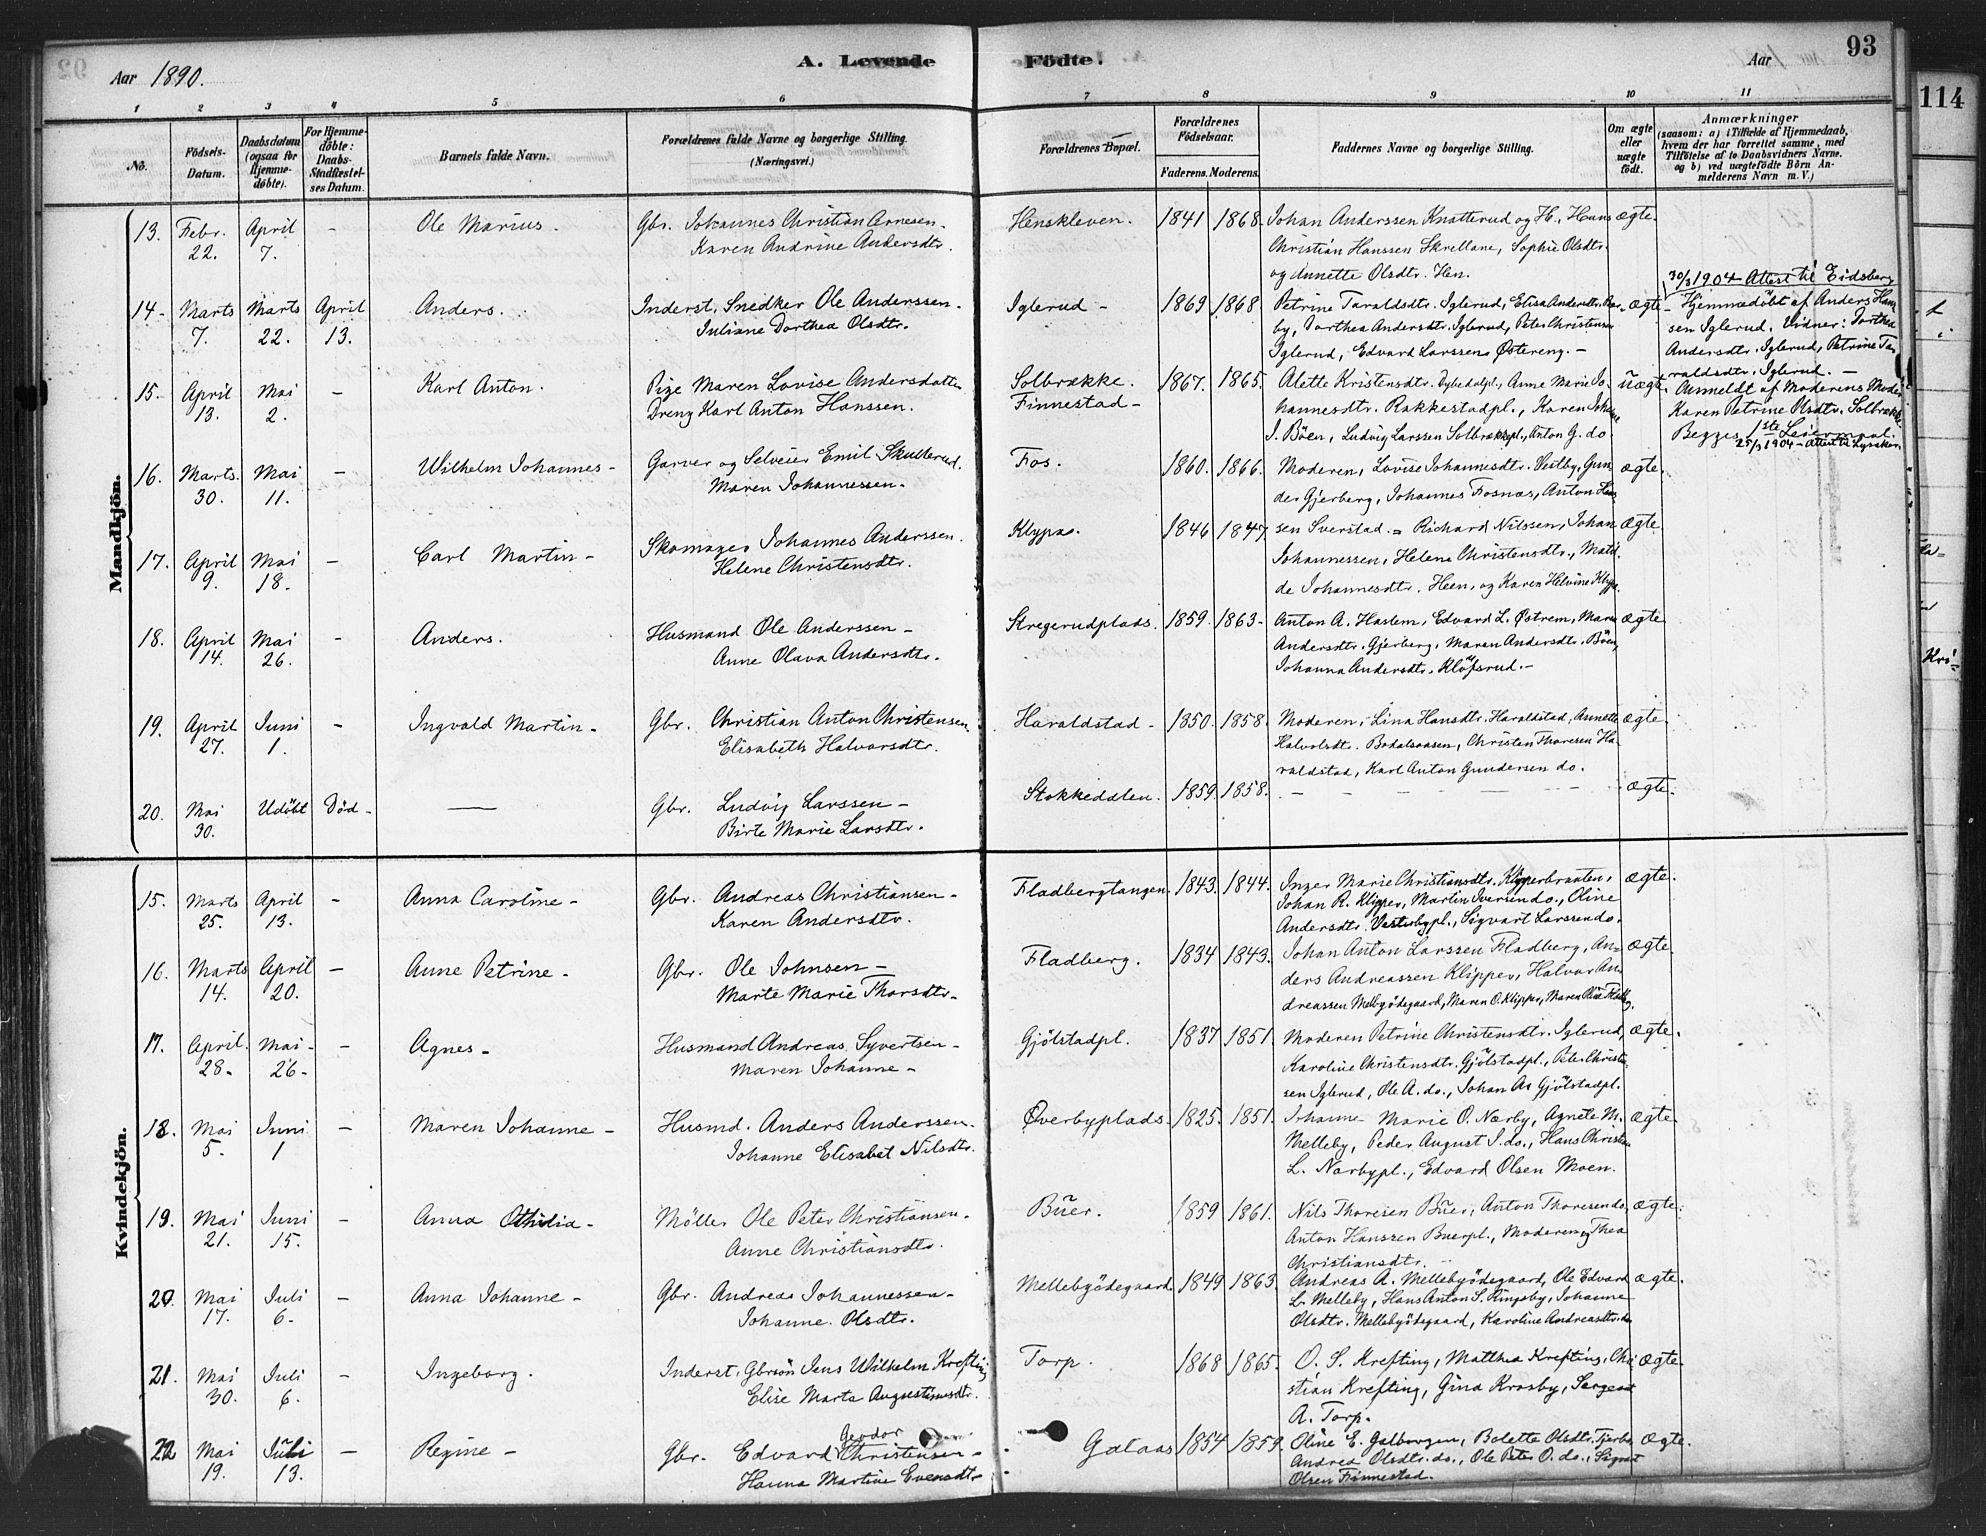 Aar 1890.
A. Levende Födte.
Aar
93
114
1 2 3 4 5 6 7 8 9 10 11
No.
Födsels-Datum.
Daabsdatum (ogsaa for Hjemme-döbte).
For Hjemme-döbte: Daabs-Stadfæstel-ses Datum.
Barnets fulde Navn.
Forældrenes fulde Navne og borgerlige Stilling (Næringsvei.)
Forældrenes Bopæl.
Forældrenes Födselsaar.
Faderens. Moderens.
Faddernes Navne og borgerlige Stilling.
Om ægte eller uægte födt.
Anmærkninger
(saasom: a) i Tilfælde af Hjemmedaab,
hvem der har forrettet samme, med
Tilföielse af to Daabsvidners Navne.
og b) ved uægtefödte Börn An-
melderens Navn m. V.)
Mandkjön.
13. Febr. 22. April 7. - Ole Marius. Gbr. Johannes Christian Arnesen. Karen Andrine Andersdtr. Henskleven. 1841 1868. Johan Anderssen Knatterud og H., Hans ægte.
Christian Hanssen Skrellane, Sophie Olsdtr.
og Annette Olsdtr. Hen.
30/3 1904 Attest til Eidsberg
14. Marts 7. Marts 22. April 13. Anders. Inderst, Snedker Ole Anderssen. Juliane Dorthea Olsdtr. Iglerud - 1869 1868 Petrine Taraldsdtr. Iglerud, Elisa Andersdtr. ægte
by, Dorthea Andersdtr. Iglerud, Peter Christensen
Iglerud, Edvard Larssen Østereng. -
Hjemmedöbt af Anders Han-
sen Iglerud. Vidner: Dorthea
Andersdtr. Iglerud, Petrine Ta-
raldsdtr. Iglerud. -
15. April 13. Mai 2. - Karl Anton. Pige Maren Lovise Andersdatter Dreng Karl Anton Hanssen. Solbrække. Finnestad - 1867. 1865. Alette Kristensdtr. Dybedalpl., Anne Marie Jo- uægte.
hannesdtr. Rakkestadpl., Karen
J. Böen, Ludvig Larssen Solbrækkepl., Anton G. do.
Anmeldt af Moderens Moder
Karen Petrine Olsdtr. Solbrække
Begges 1ste Leiermaal.
25/3 1904 - Attest til
16. Marts. 30. Mai 11. - Wilhelm Johannes - Garver og Selveier Emil Skullerud. Maren Johannessen. Fos. 1860. 1866. Moderen, Lovise Johannesdtr. Vestby, Gun- ægte.
der Gjerberg, Johannes Fosnæs, Anton Han-
sen Sverstad. -
17. April 9. Mai 18. - Carl Martin - Skomager Johannes Anderssen. Helene Christensdtr. Klypæ. 1846 1847. Richard Nilssen, Johan ægte.
Johannessen, Helene Christensdtr., Matil-
de Johannesdtr. Heen, og Karen Helvine
18. April 14. Mai 26. - Anders. Husmand Ole Anderssen - Anne Olava Andersdtr. Skregerudplads. 1859. 1863 - Anton A. Haslem, Edvard L. Östrem, Maren ægte
Andersdtr. Gjerberg, Maren Andersdtr. Böen,
Johanna Andersdtr. Klöfsrud. -
19. April 27. Juni 1. - Ingvald Martin - Gbr. Christian Anton Christensen Elisabeth Halvorsdtr. Haraldstad - 1850. 1858. Moderen, Lina Hansdtr. Haraldstad, Annette ægte.
Halvolsdtr. Bodalsaasen, Christen Thoresen Ha-
raldstad, Karl Anton Gundersen do.
20. Mai 30. Udöbt Död - — Gbr. Ludvig Larssen - Birte Marie Larsdtr. Stokkedalen. 1859. 1858. - - - - - ægte.
Kvindekjön.
15. Marts 25. April 13. - Anna Caroline - Gbr. Andreas Christiansen - Karen Andersdtr. Fladbergtangen. 1843. 1844. Inger Marie Christiansdtr. Klipperbraaten, ægte.
Johan R. Klipper, Martin Iversen do., Oline
Andersdtr. Vesterbypl., Sigvart Larssen do.
16. Marts 14. April 20. - Anne Petrine - Gbr. Ole Johnsen - Marte Marie Thorsdtr. Fladberg. 1834 1843. Johan Anton Larssen Fladberg, An- ægte.
ders Andreassen Klipper, Halvor An-
dreassen Melbyödegaard, Maren O. Klipper, Maren Oline
17. April. 28. Mai 26. - Agnes - Husmand Andreas Syvertsen - Maren Johanne - Gjölstadpl. 1837 1851. Moderen Petrine Christensdtr. Iglerud, ægte.
Karoline Christensdtr. Gjölstadpl., Peter Christen-
sen Iglerud, Ole A. do., Johan A. Gjölstadpl.
18. Mai 5. Juni 1 - Maren Johanne - Husmd. Anders Anderssen. Johanne Elisabet Nilsdtr. Överbyplads 1825. 1851. Johanne Marie O. Nærby, Agnete M. ægte.
Melleby, Peder August J. do., Hans Christian
L. Narbypl., Edvard Olsen Moen.
19. Mai 21. Juni 15. - Anna Othidia - Möller Ole Peter Christiansen. Anne Christiansdtr. Buer. 1859 1861. Nils Thoresen Buer, Anton Thoresen do, ægte.
Anton Hanssen Buerpl., Moderen og Thea
Christiansdtr. -
20. Mai 17. Juli 6. - Anna Johanne - Gbr. Andreas Johannessen - Johanne Olsdtr. Mellebyödegaard 1849 1863. Andreas A. Mellebyödegaard, Ole Edvard ægte.
L. Melleby, Hans Anton S. Ringsby, Johanne
Olsdtr. Mellebyödegaard, Karoline Andreasdtr. do
21. Mai 30. Juli 6. - Ingeborg. Inderst, Gbrsön Jens Wilhelm Krefting Elise Marta Augustinusdtr. Torp. 1868 1865. O. S. Krefting, Matthea Krefting, Chri ægte.
stian Krefting, Gina Krosby, Sergeant
A. Torp.
22 Mai 19. Juli 13. - Regine - Gbr. Edvard Teodor Christensen - Hanna Martine Evensdtr. Galaas 1854 1859. Oline E. Galborgen, Bolette Olsdtr. ægte.
Andrea Olsdtr. do., Ole Peter O. do., Sigvat
Olsen Finnestad.
Kri-